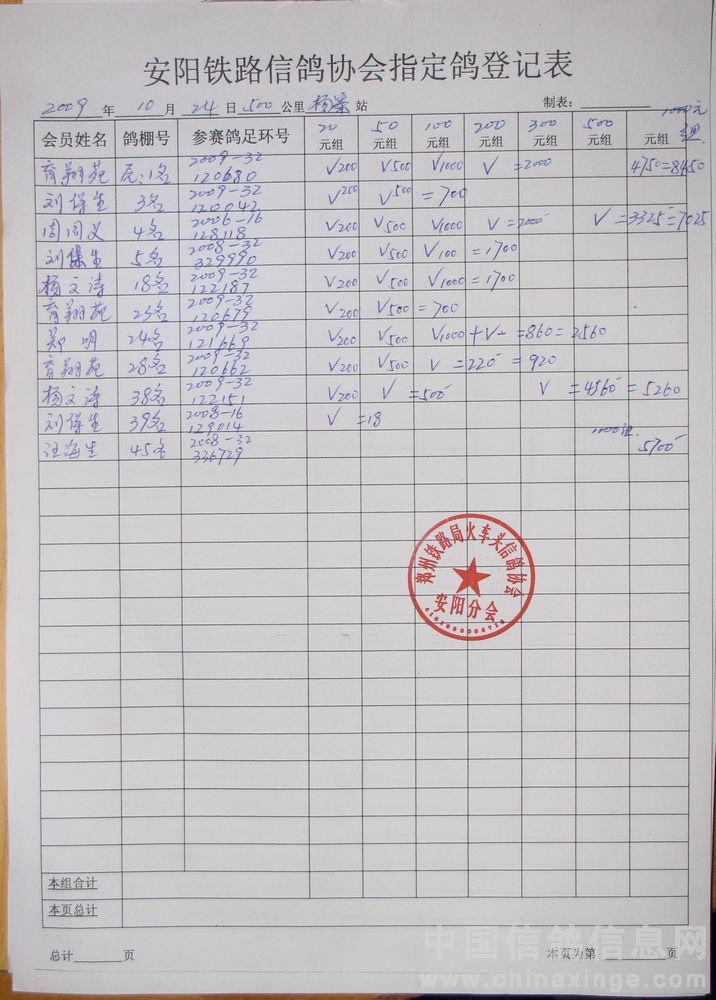 安阳铁路信鸽协会指定鸽登记表
2009 年 10 月 24 日 500 公里 杨寨 站 制表：
会员姓名 鸽棚号 参赛鸽足环号 20元组 50元组 100元组 200元组 300元组 500元组 元组 1000元组
育翔苑 1名 2009-32 120680 V200 V500 V1000 V =2000 4750=8450
刘保生 3名 2009-32 120042 V200 V500 =700
周同义 4名 2006-16 128118 V200 V500 V1000 V =2000 V =3325=7025
刘保生 5名 2008-32 329990 V200 V500 V100 =1700
杨文涛 18名 2009-32 122187 V200 V500 V1000 =1700
育翔苑 23名 2009-32 120679 V200 V500 =700
郑明 24名 2009-32 121669 V200 V500 V1000 +V- =860=2560
育翔苑 28名 2009-32 120662 V200 V500 V =220 =920
杨文涛 38名 2009-32 122151 V200 V =500 V =4560=5260
刘保生 39名 2008-16 129014 V =18
汪海生 45名 2008-32 336729 1000组 5700
郑州铁路局火车头信鸽协会
安阳分会
本组合计
本页总计
总计 页 本页为第 页
中国信鸽信息网
www.chinaxinge.com